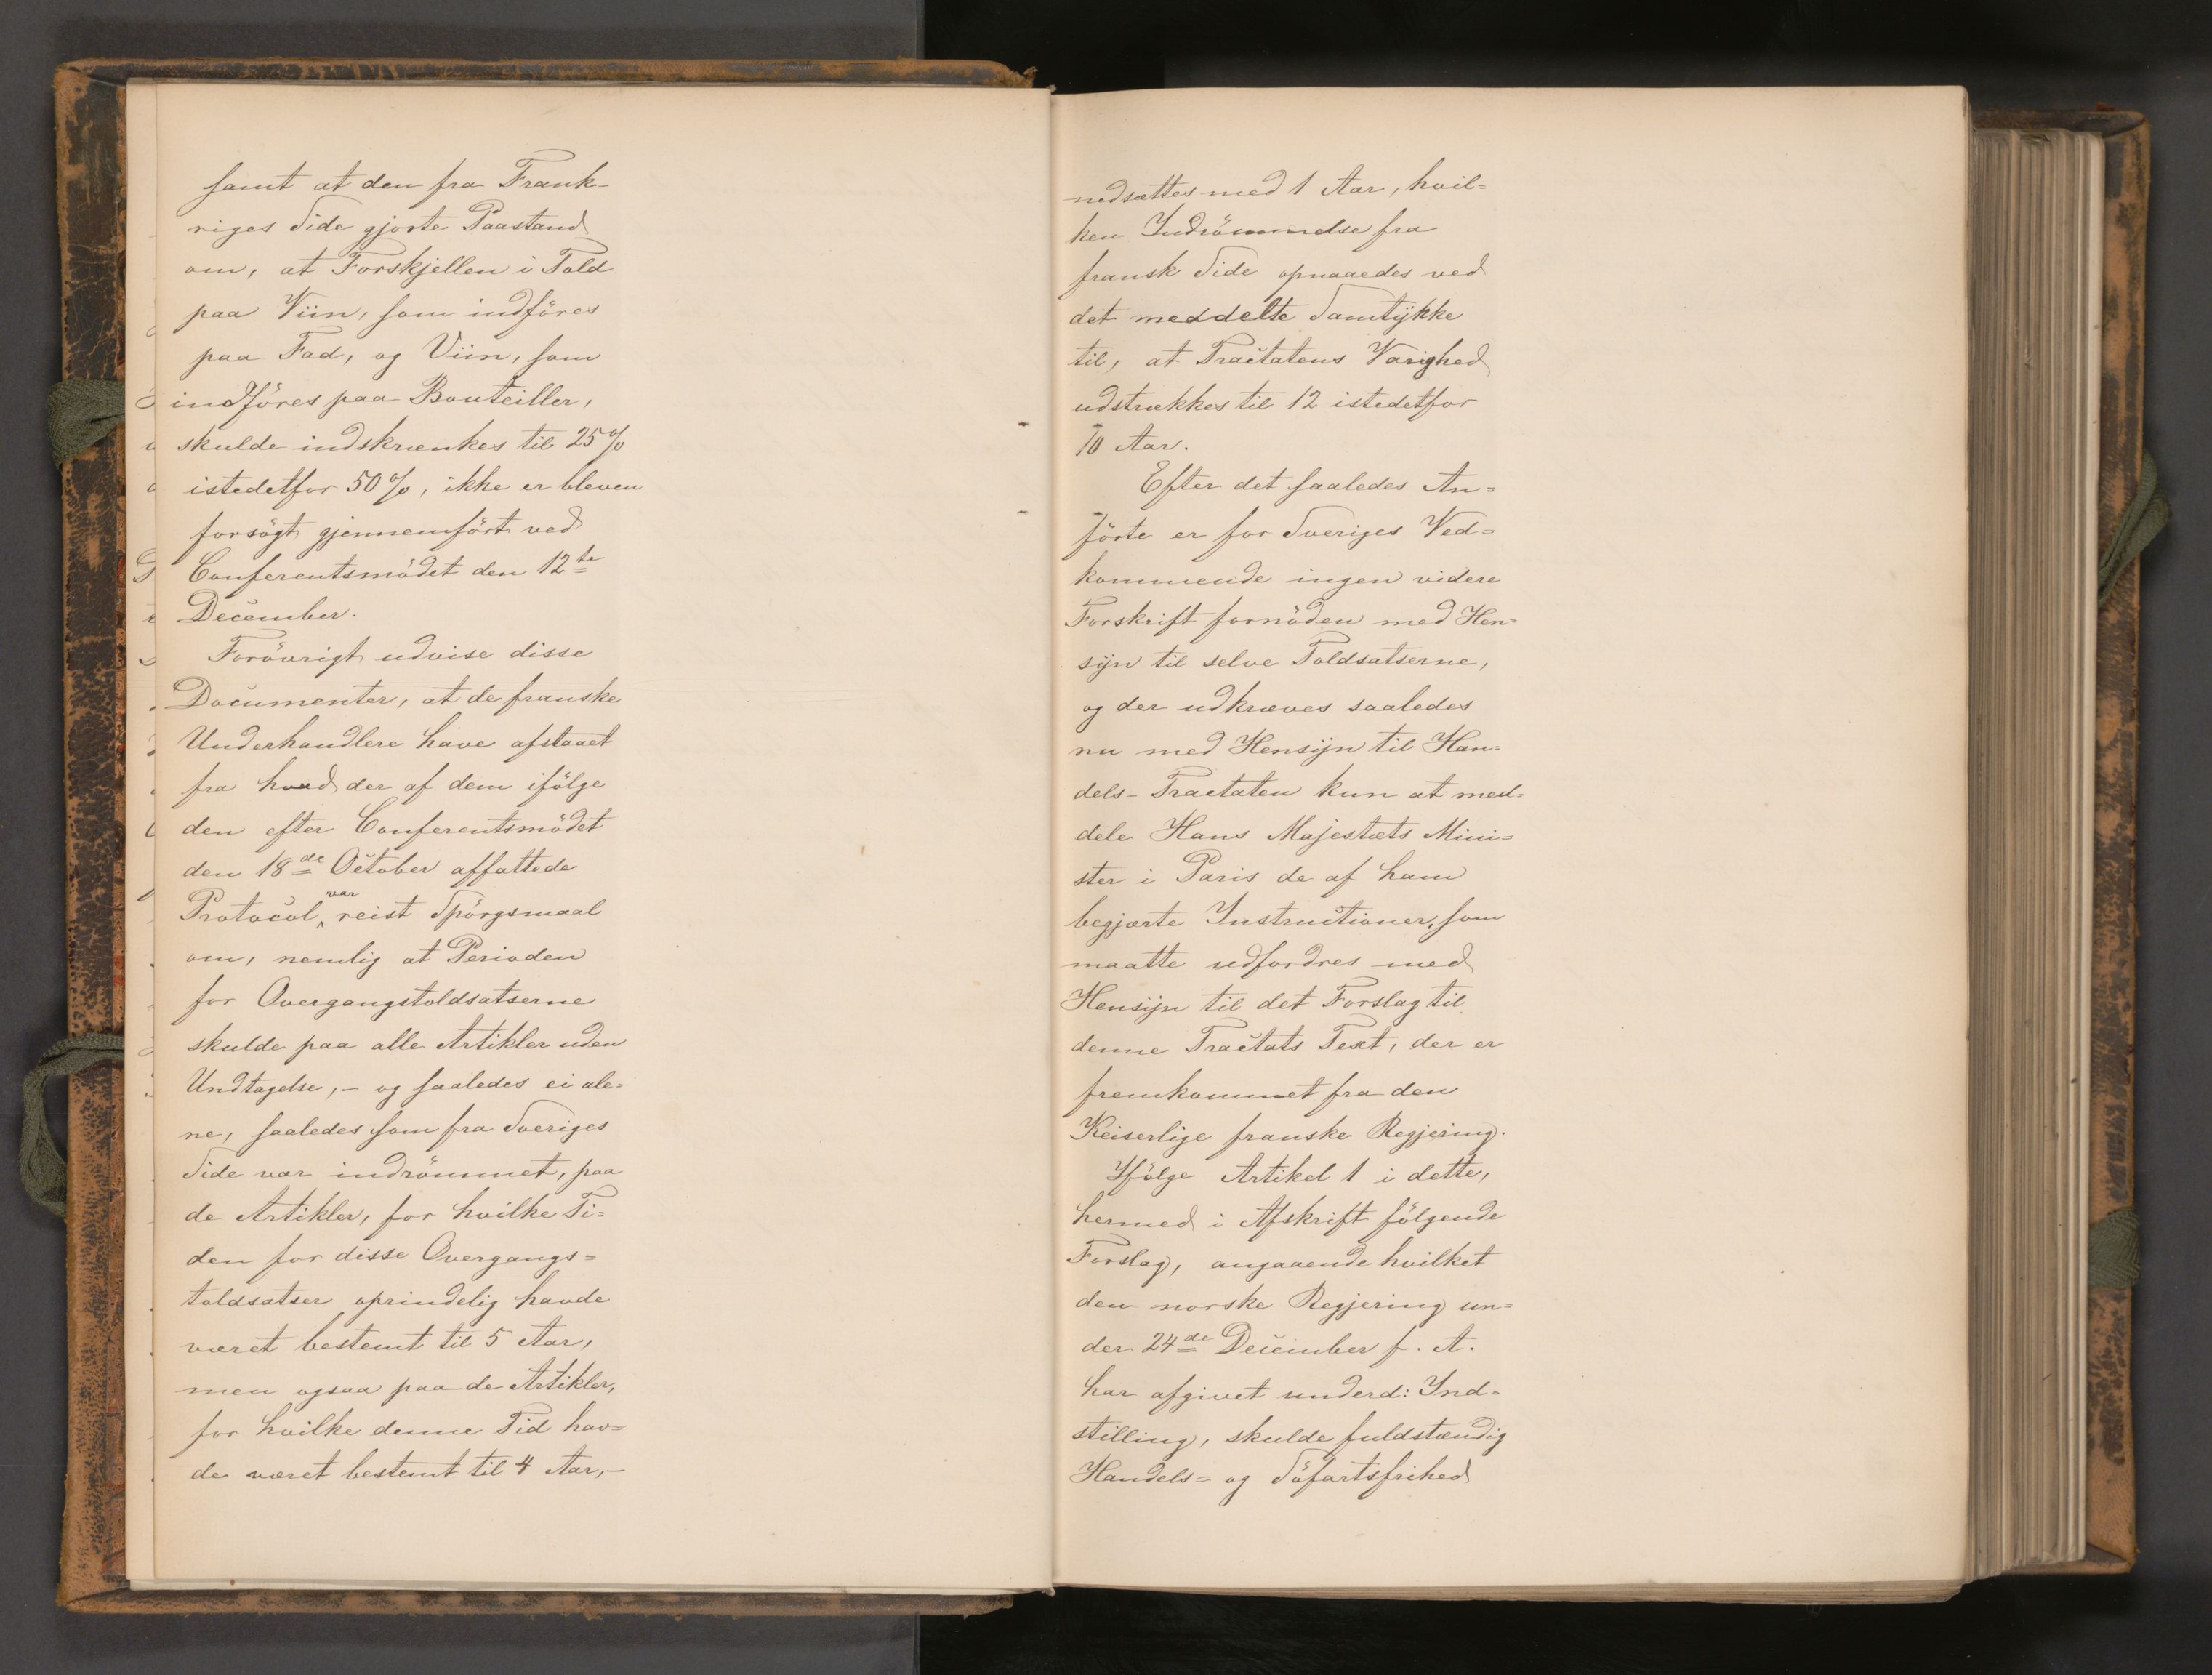 samt at den fra Frank-
riges Side gjorte Paastand
om, at Forskjellen i Told
paa Viin, som indföres
paa Fad, og Viin, som
indföres paa Bouteiller,
skulde indskrænkes til 25%
istedetfor 50%, ikke er bleven
forsögt gjennemfört ved
Conferentsmödet den 12te
December.
Forövrigt udvise disse
Documenter, at de franske
Underhandlere have afstaaet
fra hvad der af dem ifölge
den efter Conferentsmödet
den 18de October affattede
Protocol var reist Spörgsmaal
om, nemlig at Perioden
for Overgangstoldsatserne
skulde paa alle Artikler uden
Undtagelse, - og saaledes ei ale=
ne, saaledes som fra Sveriges
Side var indrömmet, paa
de Artikler, for hvilke Ti=
den for disse Overgangs=
toldsatser oprindelig havde
været bestemt til 5 Aar,
men ogsaa paa de Artikler,
for hvilke denne Tid hav=
de været bestemt til 4 Aar, -
nedsættes med 1 Aar, hvil=
ken Indrömmelse fra
fransk Side opnaaedes ved
det meddelte Samtÿkke
til, at Tractatens Varighed
udstrækkes til 12 istedetfor
10 Aar.
Efter det saaledes An=
förte er for Sveriges Ved=
kommende ingen videre
Forskrift fornöden med Hen=
sÿn til selve Toldsatserne,
og der udkræves saaledes
nu med Hensÿn til Han=
dels- Tractaten kun at med=
dele Hans Majestæts Mini=
ster i Paris de af ham
begjærte Instructioner, som
maatte udfordres med
Hensÿn til det Forslag til
denne Tractats Text, der er
fremkommet fra den
Keiserlige franske Regjering.
Ifölge Artikel 1 i dette,
hermed i Afskrift fölgende
Forslag, angaaende hvilket
den norske Regjering un=
der 24de December f. A.
har afgivet underd: Ind=
stilling, skulde fuldstændig
Handels= og Söfartsfrihed